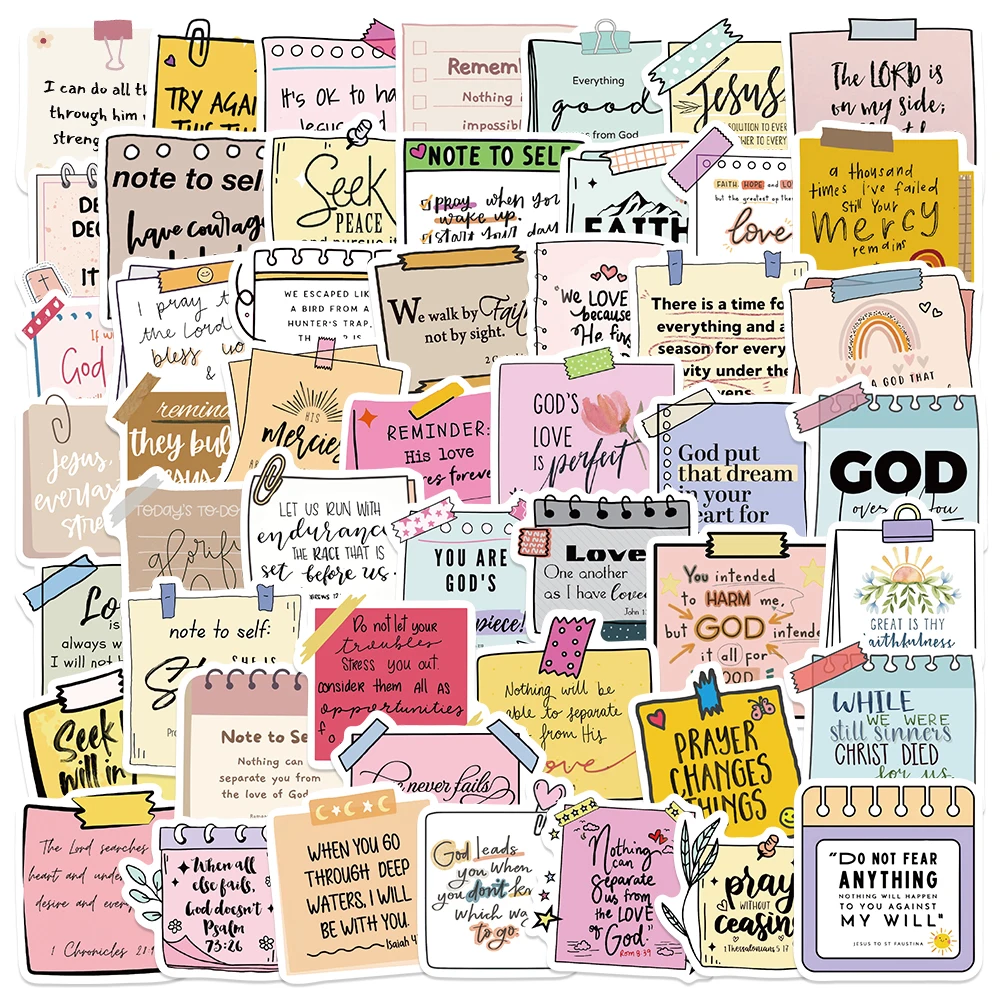 I can do all th
through him
streng
TRY AGAI
It's OK to ha
Jesus
Rememb
Nothing i
impossibl
Everything
good
es from God
Jesus
SOLUTION TO EVER
WER TO EVERY
The LORD is
on my side;
note to sel
have courag
Seek
PEACE
and pursue it
NOTE TO SELF
pray when you
wake up.
start your day
FAITH
FAITH, HOPE and LO
but the greatest of the
love
a thousand
times I've failed
Still Your
Mercy
remains
DE
DEC
IT
I pray t
the Lord
bless yo
&
WE ESCAPED LIK
A BIRD FROM A
HUNTER'S TRAP.
We walk by Faith
not by sight.
2 Co
We LOVE
because
He firs
There is a time fo
everything and a
season for every
vity under the
vens.
A GOD THAT
If
God
remind
they bul
Jesus t
HIS
mercies
REMINDER:
His love
res foreve
GOD'S
LOVE
IS perfect
God put
that dream
in your
heart for
GOD
over
you
Jesus,
everlas
stre
TODAY'S TO-DO
glorify
LET US RUN WITH
endurance
THE RACE THAT IS
set before us.
YOU ARE
GOD'S
piece!
Love
One another
as I have loved
John 1
You intended
to HARM me,
but GOD intende
it all for
GOOD
GREAT IS THY
faithfulness
Lo
is
always w
I will not
note to self:
SHE IS
Do not let your
troubles
Stress you out.
consider them all as
opportunities
fo
Nothing will be
able to separate
from His
Love
PRAYER
CHANGES
THINGS
WHILE
WE WERE
still sinners
CHRIST DIED
for us
Seek
will in
Note to Se
Nothing can
separate you from
the love of God
e never fails
The Lord searches
heart and unde
desire and every
1 Chronicles
When all
else fails,
God doesn't
Psalm
73:26
WHEN YOU GO
THROUGH DEEP
WATERS, I WILL
BE WITH YOU.
Isaiah 4
God leads
you when
you don't kn
which wa
to go.
"Nothing
can
Separate
Us from
the LOVE
of God."
Rom 8:39
pray
WITHOUT
ceasing
1 Thessalonians 5:17
"DO NOT FEAR
ANYTHING
NOTHING WILL HAPPEN
TO YOU AGAINST
MY WILL"
JESUS TO ST FAUSTINA